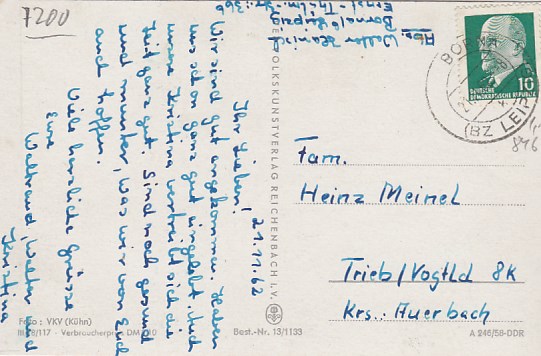 7200
Abs: Walter Hanisch
Borna b/Leipzig
Ernst-Thälm.-Str. 36b
21.11.62
Ihr Lieben!
Wir sind gut angekommen. Haben
uns schon ganz gut eingelebt. Auch
unsere Kristina vertreibt sich die
Zeit ganz gut. Sind noch gesund
und munter, was wir von Euch
auch hoffen.
Viele herzliche Grüsse
Eure
Waltraud, Walter und
Kristina
VOLKSKUNSTVERLAG REICHENBACH I. V.
BORNA
(BZ LEIPZ
10
DEUTSCHE
DEMOKRATISCHE REPUBLIK
846
Fam.
Heinz Meinel
Trieb/Vogtld 8K
Krs.: Auerbach
Foto: VKV (Kühn)
III/18/117 · Verbraucherpreis DM
Best.-Nr. 13/1133
A 246/58-DDR